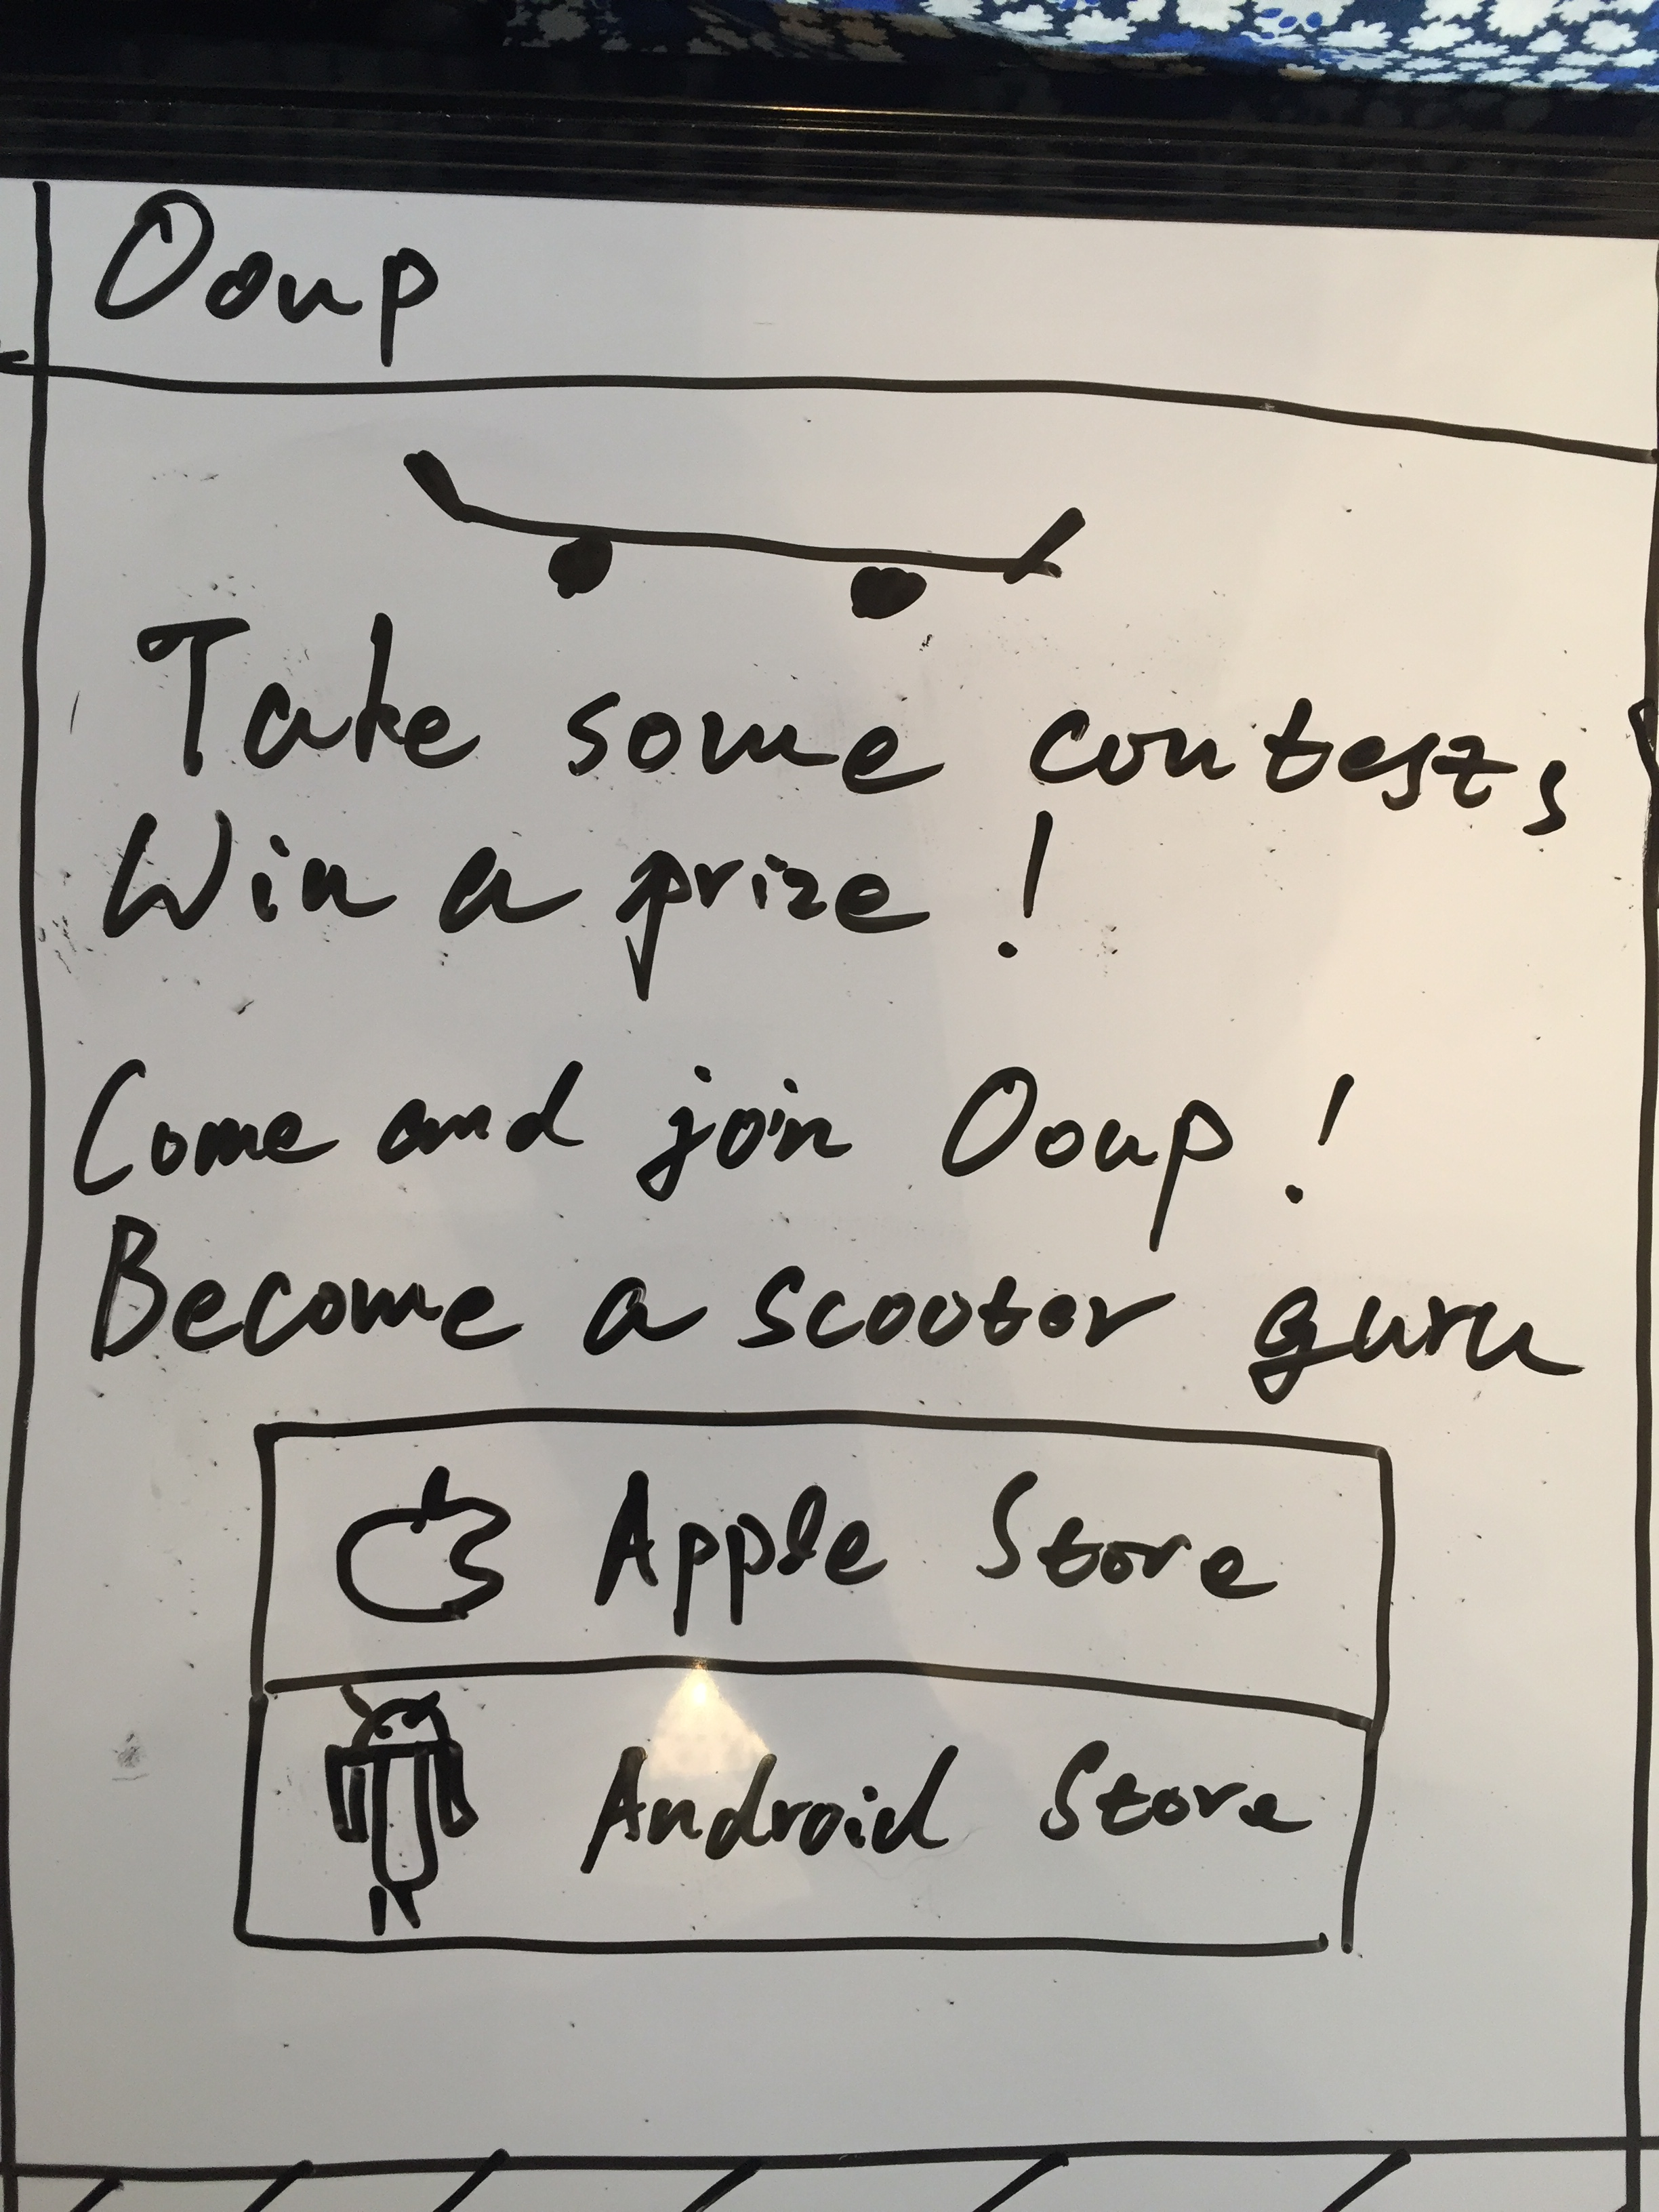 Ooup
Take some contests
Win a prize !
Come and join Ooup !
Become a scooter guru
Apple Store
Android Store